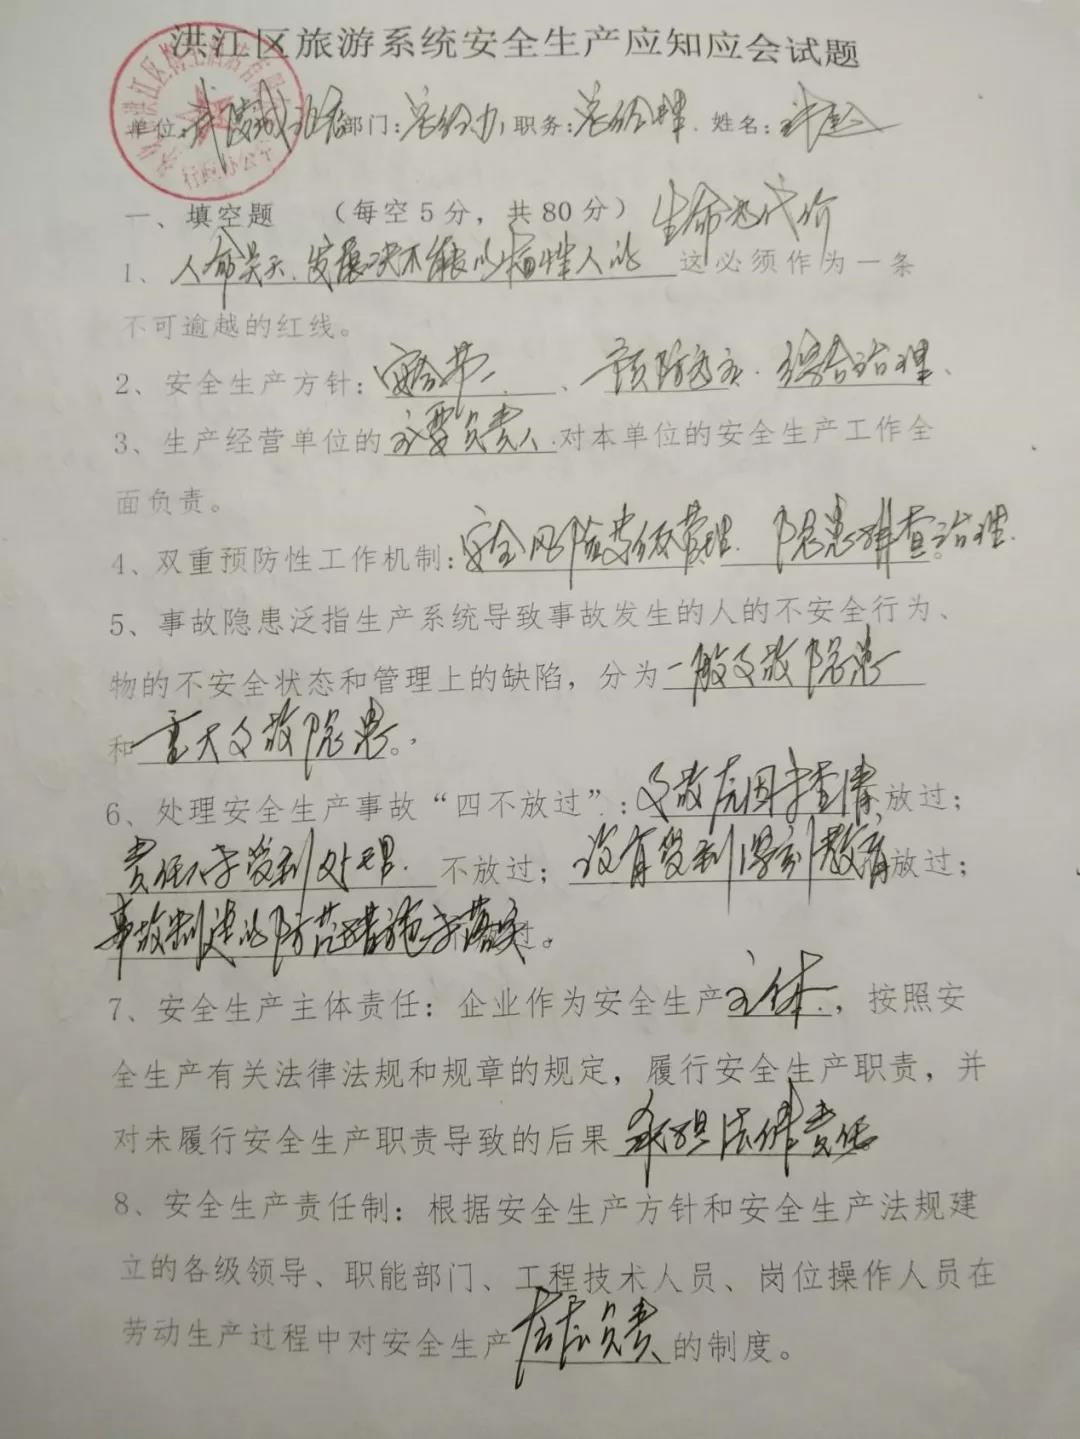 洪江区旅游系统安全生产应知应会试题
单位: 部门:总经办 职务:总经理 姓名:
行政办公室
一、填空题 （每空5分，共80分） 生命为代价
1、人命关天,发展决不能以牺牲人的 这必须作为一条
不可逾越的红线。
2、安全生产方针:安全第一、预防为主、综合治理、
3、生产经营单位的主要负责人对本单位的安全生产工作全
面负责。
4、双重预防性工作机制:安全风险等级管理 隐患排查治理。
5、事故隐患泛指生产系统导致事故发生的人的不安全行为、
物的不安全状态和管理上的缺陷，分为一般事故隐患
和重大事故隐患。
6、处理安全生产事故“四不放过”:事故原因未查清放过;
责任人未受到处理 不放过;没有受到深刻教育放过;
事故制定的防范措施未落实过。
7、安全生产主体责任:企业作为安全生产主体，按照安
全生产有关法律法规和规章的规定，履行安全生产职责，并
对未履行安全生产职责导致的后果承担法律责任
8、安全生产责任制:根据安全生产方针和安全生产法规建
立的各级领导、职能部门、工程技术人员、岗位操作人员在
劳动生产过程中对安全生产层层负责的制度。